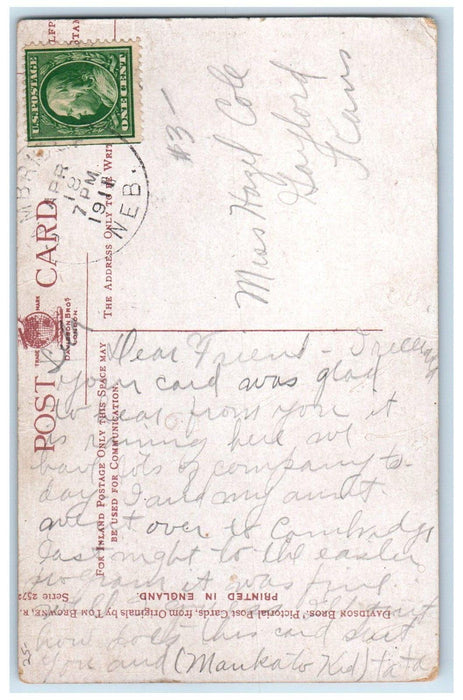 POST CARD
TRADE MARK
DAVIDSON BROS
LONDON
FOR INLAND POSTAGE ONLY THIS SPACE MAY
BE USED FOR COMMUNICATION.
THE ADDRESS ONLY TO BE WRIT
U.S. POSTAGE
ONE CENT
APR
18
7 PM
1911
NEB.
#3-
Miss Hazel Cole
Gaylord
Kans
Dear Friend - I
your card was glad
to hear from you it
is raining here we
have lots of company to-
day. I and my aunt
went over to Cambridge
last night to the easter
program it was fine.
how does this card suit
you and (Mankato Kid) ta ta
DAVIDSON BROS.' Pictorial Post Cards, from Originals by TOM BROWNE, R.
Serie 257
PRINTED IN ENGLAND.
25-